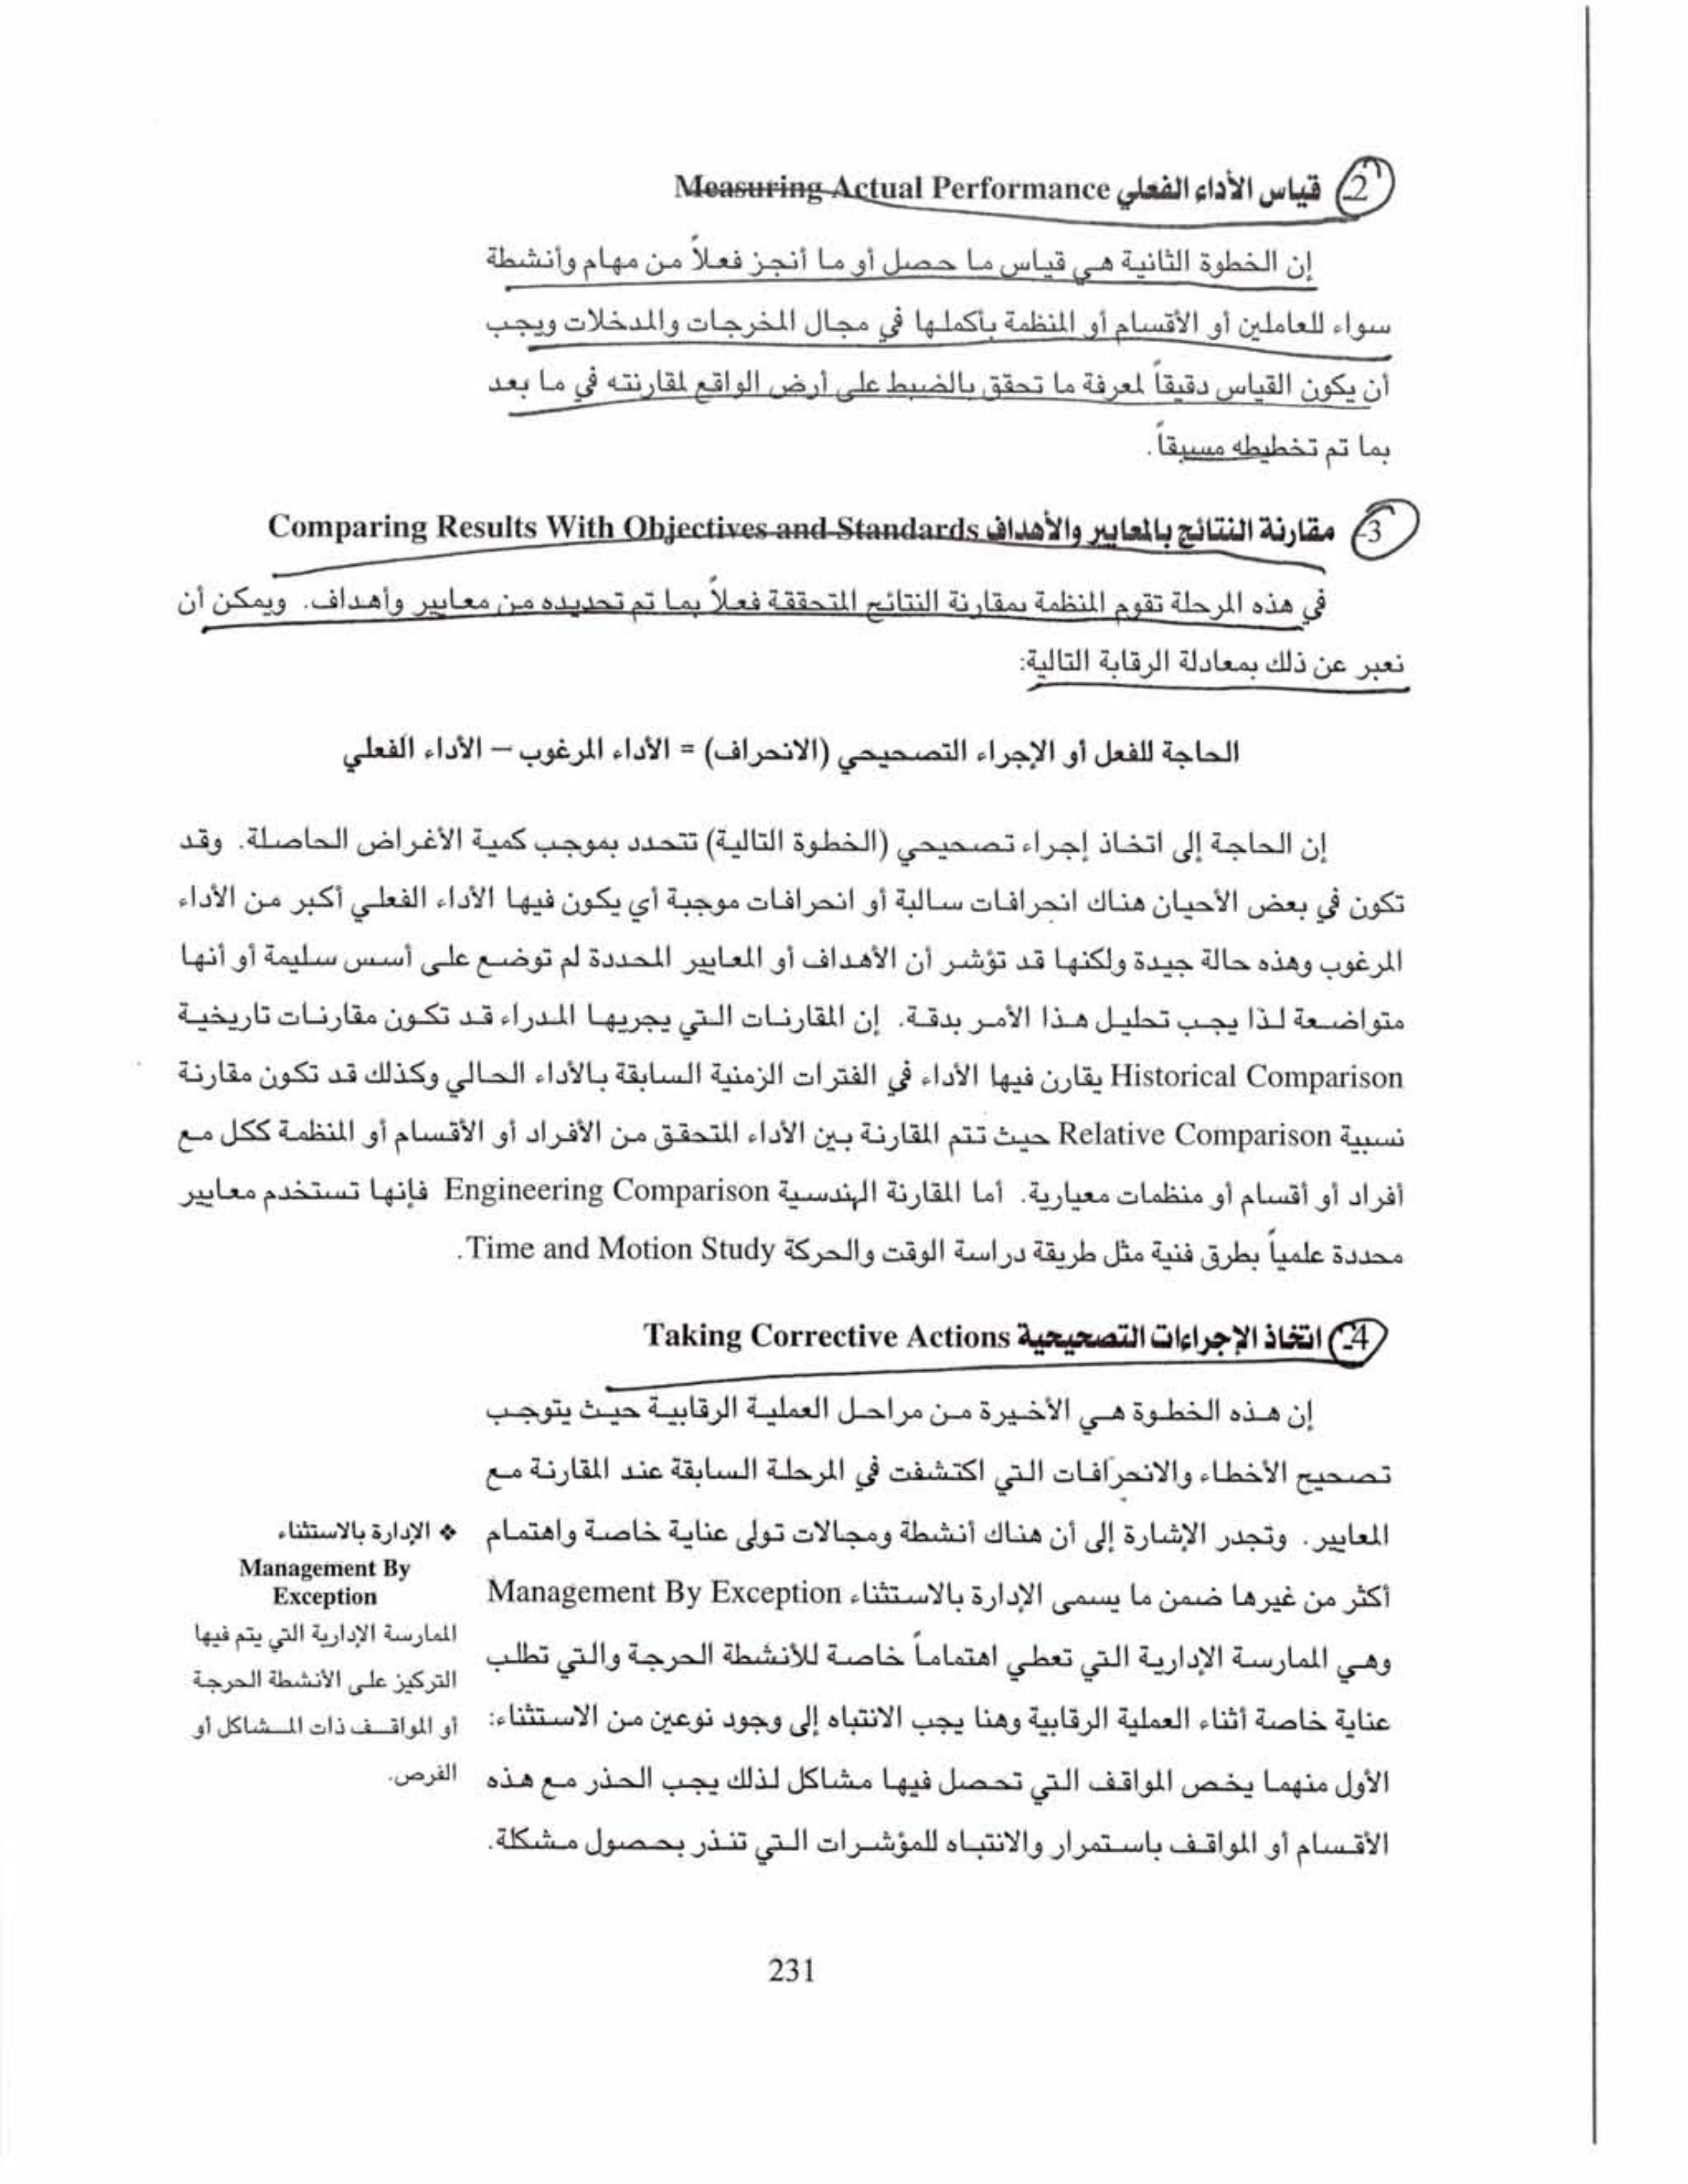 2- قياس الأداء الفعلي Measuring Actual Performance
إن الخطوة الثانية هي قياس ما حصل أو ما أنجز فعلاً من مهام وأنشطة
سواء للعاملين أو الأقسام أو المنظمة بأكملها في مجال المخرجات والمدخلات ويجب
أن يكون القياس دقيقاً لمعرفة ما تحقق بالضبط على أرض الواقع لمقارنته في ما بعد
بما تم تخطيطه مسبقاً.
3- مقارنة النتائج بالمعايير والأهداف Comparing Results With Objectives and Standards
في هذه المرحلة تقوم المنظمة بمقارنة النتائج المتحققة فعلاً بما تم تحديده من معايير وأهداف. ويمكن أن
نعبر عن ذلك بمعادلة الرقابة التالية:
الحاجة للفعل أو الإجراء التصحيحي (الانحراف) = الأداء المرغوب – الأداء الفعلي
إن الحاجة إلى اتخاذ إجراء تصحيحي (الخطوة التالية) تتحدد بموجب كمية الأغراض الحاصلة. وقد
تكون في بعض الأحيان هناك انحرافات سالبة أو انحرافات موجبة أي يكون فيها الأداء الفعلي أكبر من الأداء
المرغوب وهذه حالة جيدة ولكنها قد تؤشر أن الأهداف أو المعايير المحددة لم توضع على أسس سليمة أو أنها
متواضعة لذا يجب تحليل هذا الأمر بدقة. إن المقارنات التي يجريها المدراء قد تكون مقارنات تاريخية
Historical Comparison يقارن فيها الأداء في الفترات الزمنية السابقة بالأداء الحالي وكذلك قد تكون مقارنة
نسبية Relative Comparison حيث تتم المقارنة بين الأداء المتحقق من الأفراد أو الأقسام أو المنظمة ككل مع
أفراد أو أقسام أو منظمات معيارية. أما المقارنة الهندسية Engineering Comparison فإنها تستخدم معايير
محددة علمياً بطرق فنية مثل طريقة دراسة الوقت والحركة Time and Motion Study.
4- اتخاذ الإجراءات التصحيحية Taking Corrective Actions
إن هذه الخطوة هي الأخيرة من مراحل العملية الرقابية حيث يتوجب
تصحيح الأخطاء والانحرافات التي اكتشفت في المرحلة السابقة عند المقارنة مع
المعايير. وتجدر الإشارة إلى أن هناك أنشطة ومجالات تولى عناية خاصة واهتمام
أكثر من غيرها ضمن ما يسمى الإدارة بالاستثناء Management By Exception
وهي الممارسة الإدارية التي تعطي اهتماماً خاصة للأنشطة الحرجة والتي تطلب
عناية خاصة أثناء العملية الرقابية وهنا يجب الانتباه إلى وجود نوعين من الاستثناء:
الأول منهما يخص المواقف التي تحصل فيها مشاكل لذلك يجب الحذر مع هذه
الأقسام أو المواقف باستمرار والانتباه للمؤشرات التي تنذر بحصول مشكلة.
❖ الإدارة بالاستثناء
Management By
Exception
الممارسة الإدارية التي يتم فيها
التركيز على الأنشطة الحرجة
أو المواقف ذات المشاكل أو
الفرص.
231